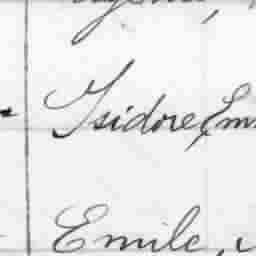 Isidore, Em
Emile,